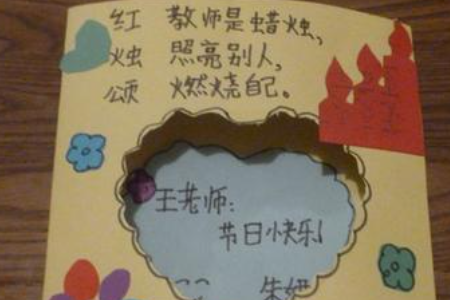 红 教师是蜡烛,
烛 照亮别人,
颂 燃烧自己。
王老师:
节日快乐!
朱妍